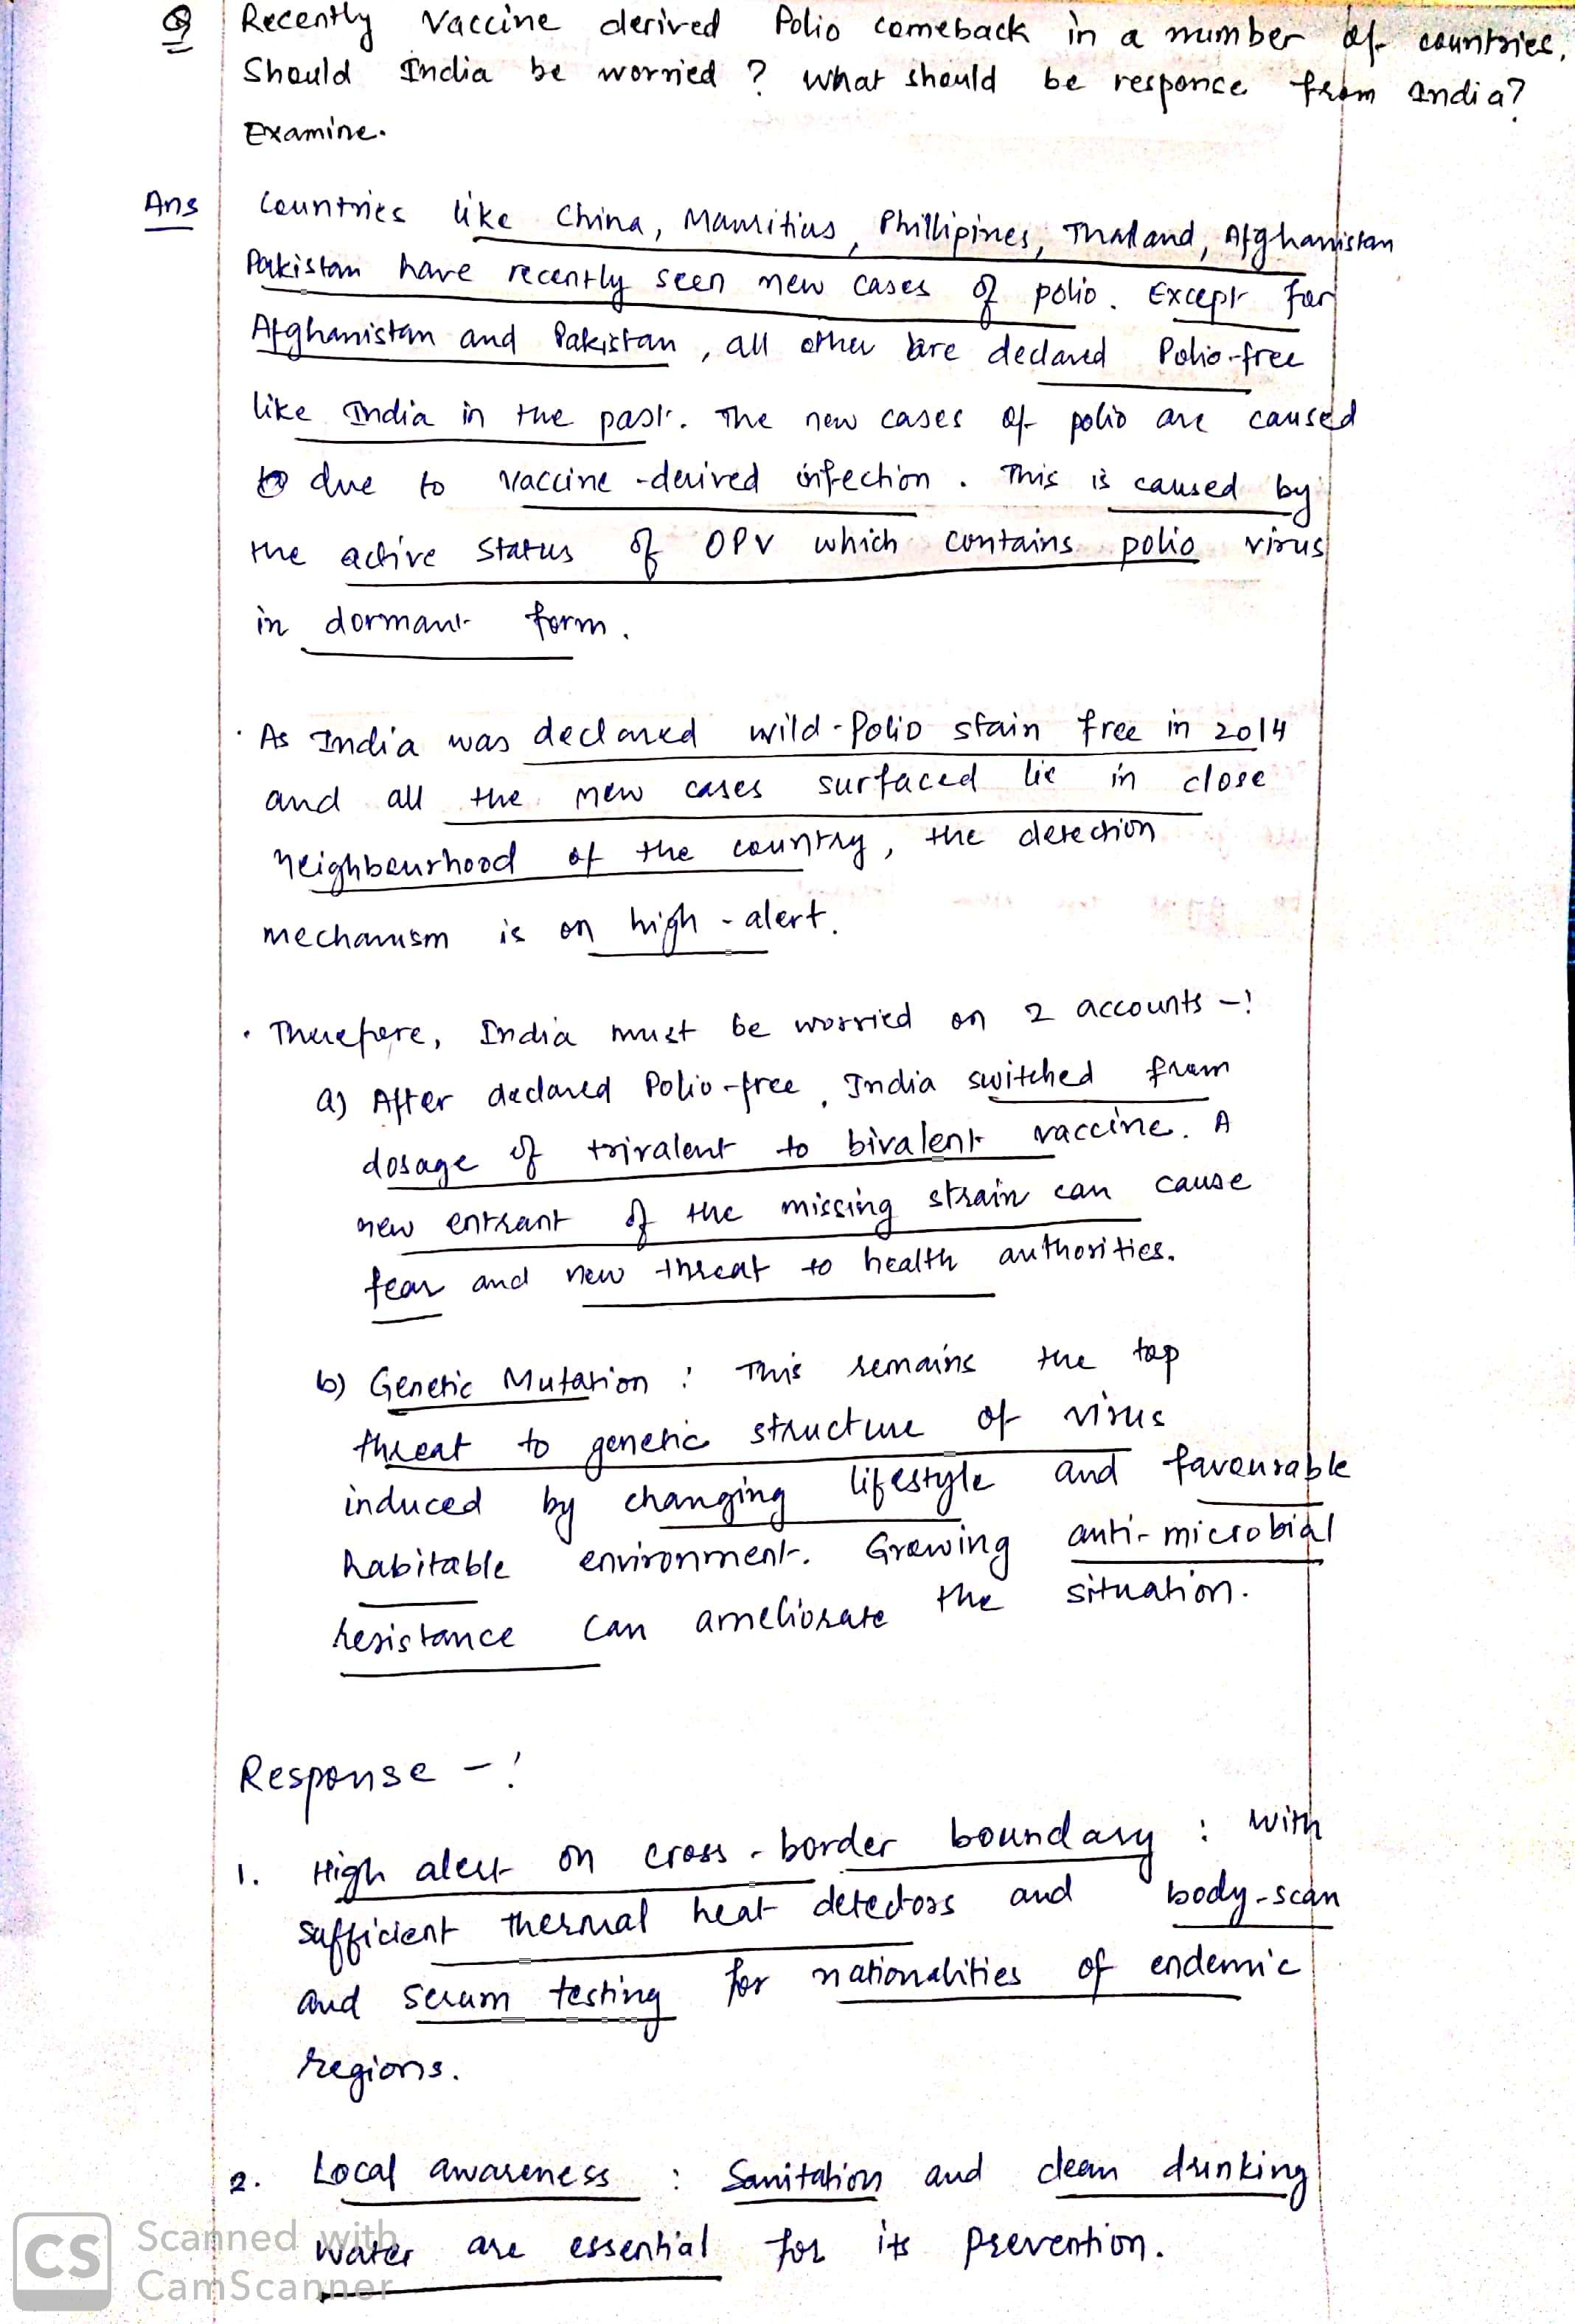 Q Recently vaccine derived Polio comeback in a number of countries.
Should India be worried ? What should be responce from India?
Examine.
Ans Countries like China, Mauritius, Phillipines, Thailand, Afghanistan
Pakistan have recently seen new cases of polio. Except for
Afghanistan and Pakistan, all other are declared Polio-free
like India in the past. The new cases of polio are caused
due to vaccine-derived infection. This is caused by
the active status of OPV which contains polio virus
in dormant form.
· As India was declared wild-Polio stain free in 2014
and all the new cases surfaced lie in close
neighbourhood of the country, the detection
mechanism is on high-alert.
· Therefore, India must be worried on 2 accounts -:
a) After declared Polio-free, India switched from
dosage of trivalent to bivalent vaccine. A
new entrant of the missing strain can cause
fear and new threat to health authorities.
b) Genetic Mutation : This remains the top
threat to genetic structure of virus
induced by changing lifestyle and favourable
habitable environment. Growing anti-microbial
resistance can ameliorate the situation.
Response -:
1. High alert on cross-border boundary : with
sufficient thermal heat detectors and body-scan
and serum testing for nationalities of endemic
regions.
2. Local awareness : Sanitation and clean drinking
water are essential for its prevention.
CS Scanned with
CamScanner